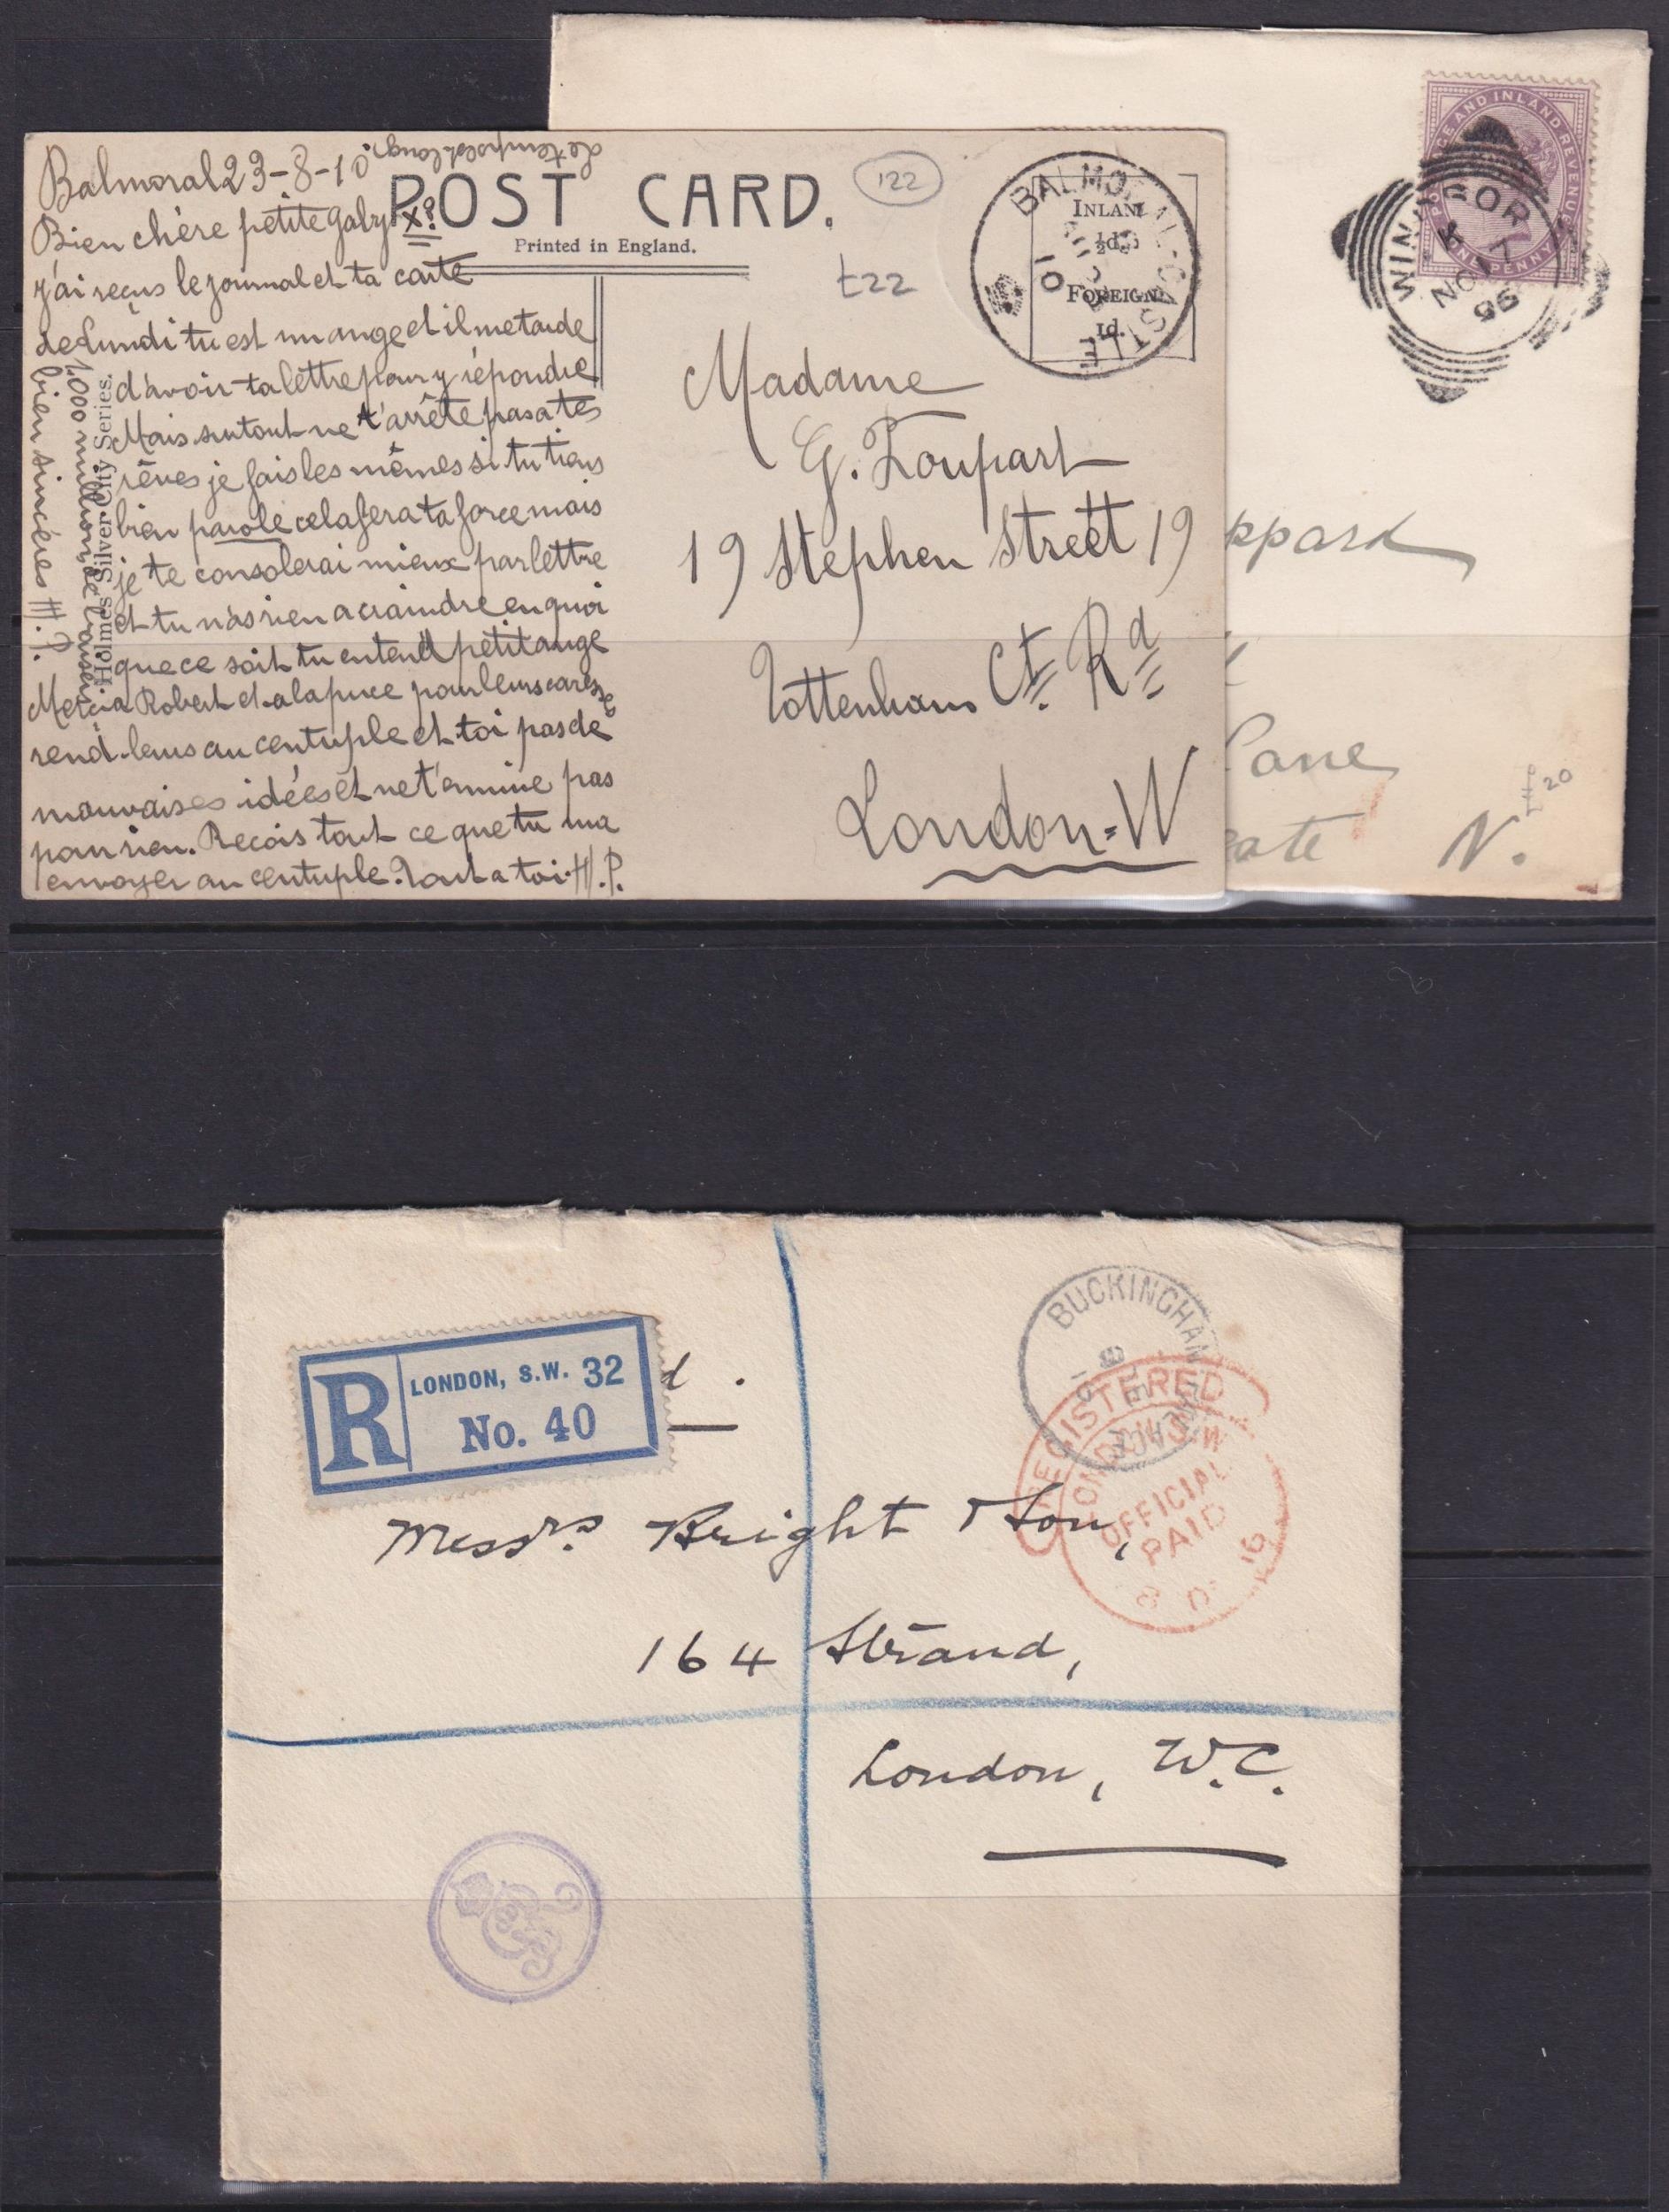 Balmoral 23-8-10
Bien chère petite Gaby X?
j'ai reçus le journal et ta carte
de Lundi tu est un ange et il me tarde
d'avoir ta lettre pour y répondre
Mais surtout ne t'arrête pas a tes
rêves je fais les mêmes si tu tiens
bien parole cela fera ta force mais
je te consolerai mieux par lettre
et tu n'as rien a craindre en quoi
que ce soit tu entend petit ange
Merci a Robert et a la puce pour leurs
rend-leurs au centuple et toi pas de
mauvaises idées et ne t'ennuie pas
pour rien. Recois tout ce que tu ma
envoyer au centuple. Tout a toi. H.P.
le temps est long
1.000 millions de baisers
bien sincères !!! .P.
Holmes' Silver City Series.
POST CARD.
Printed in England.
122
£22
BALMORAL-CASTLE
10
INLAND
½d.
FOREIGN
1d.
Madame
G. Toupart
19 Stephen Strett 19
Tottenham Ct. Rd
London=W
POSTAGE AND INLAND REVENUE
ONE PENNY
WINDSOR
NO 17
96
ppard
Lane
gate N.
£20
R
LONDON, S.W. 32
No. 40
d.
BUCKINGHAM PALACE
REGISTERED
LONDON S.W.
OFFICIAL
PAID
8 D 16
Messrs. Bright & Son,
164 Strand,
London, W.C.